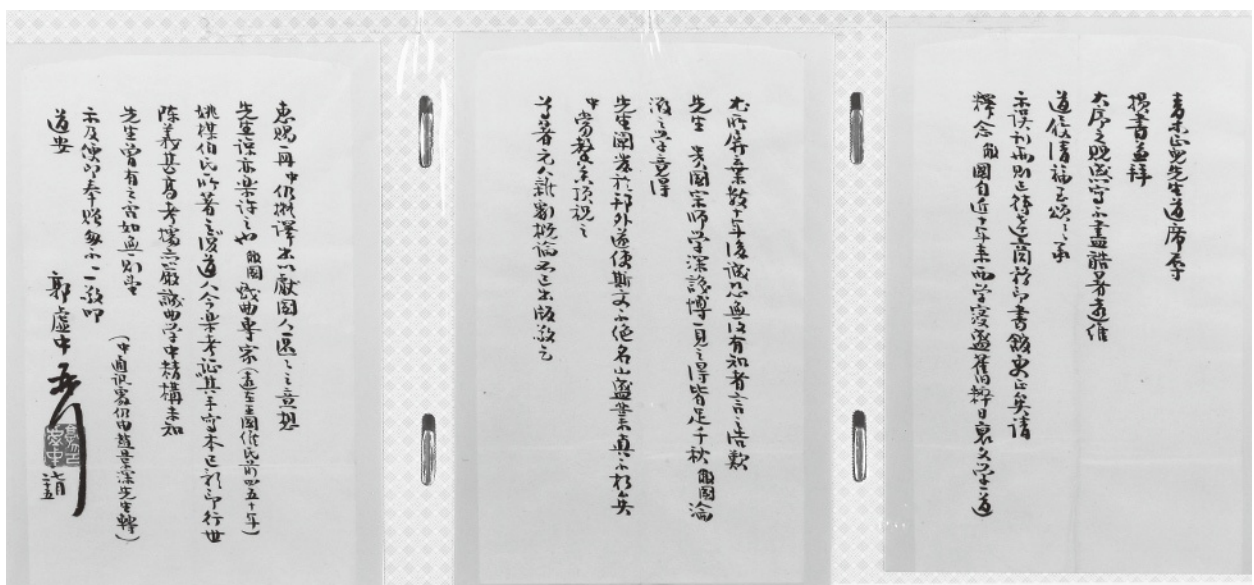 青木正兒先生道席奉
損書並拜
大序之賜感實不盡酷暑遠維
道履清福至頌之承
示誤刊兩則已轉達商務印書館更正矣請
釋念敝國自近十年來而學寖盛舊學日衰文學一道
尤所屏棄數十年後誠恐無復有知者言之浩歎
先生 貴國宗師學深該博一見之得皆足千秋敝國淪
沒之學竟得
先生闡發於邦外遂使斯文不絕名山盛業真不朽矣
中 當教育頂祝之
尊著元人雜劇概論不已出版敬乞
惠賜一冊中仍擬譯出以獻國人區區之意想
先生諒亦樂許之也敝國戲曲專家(遠在王國維氏前四五十年)
姚梅伯氏所著之復道人今樂考證其手寫本已影印行世
陳義甚高考據亦嚴誠曲學中精構未知
先生曾有之否如無則望
示及便即奉贈匆不一敬叩
道安
(中通訊處仍由趙景深先生轉)
郭虛中